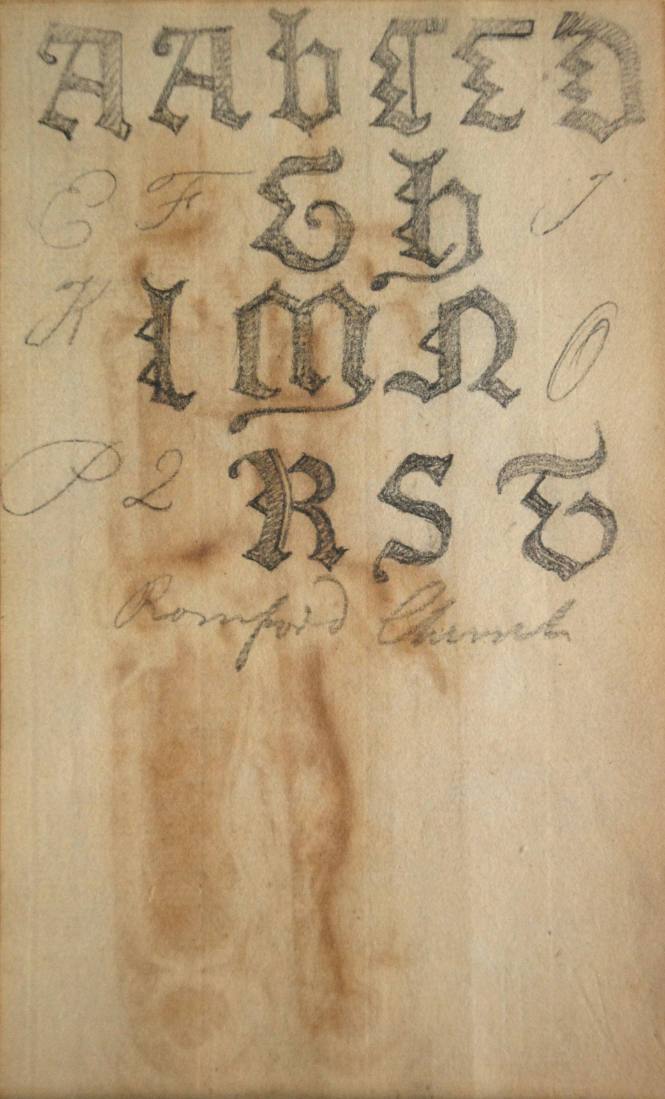 A A b C C D
E F G h J
K l M N O
P Q R S T
Romford Church